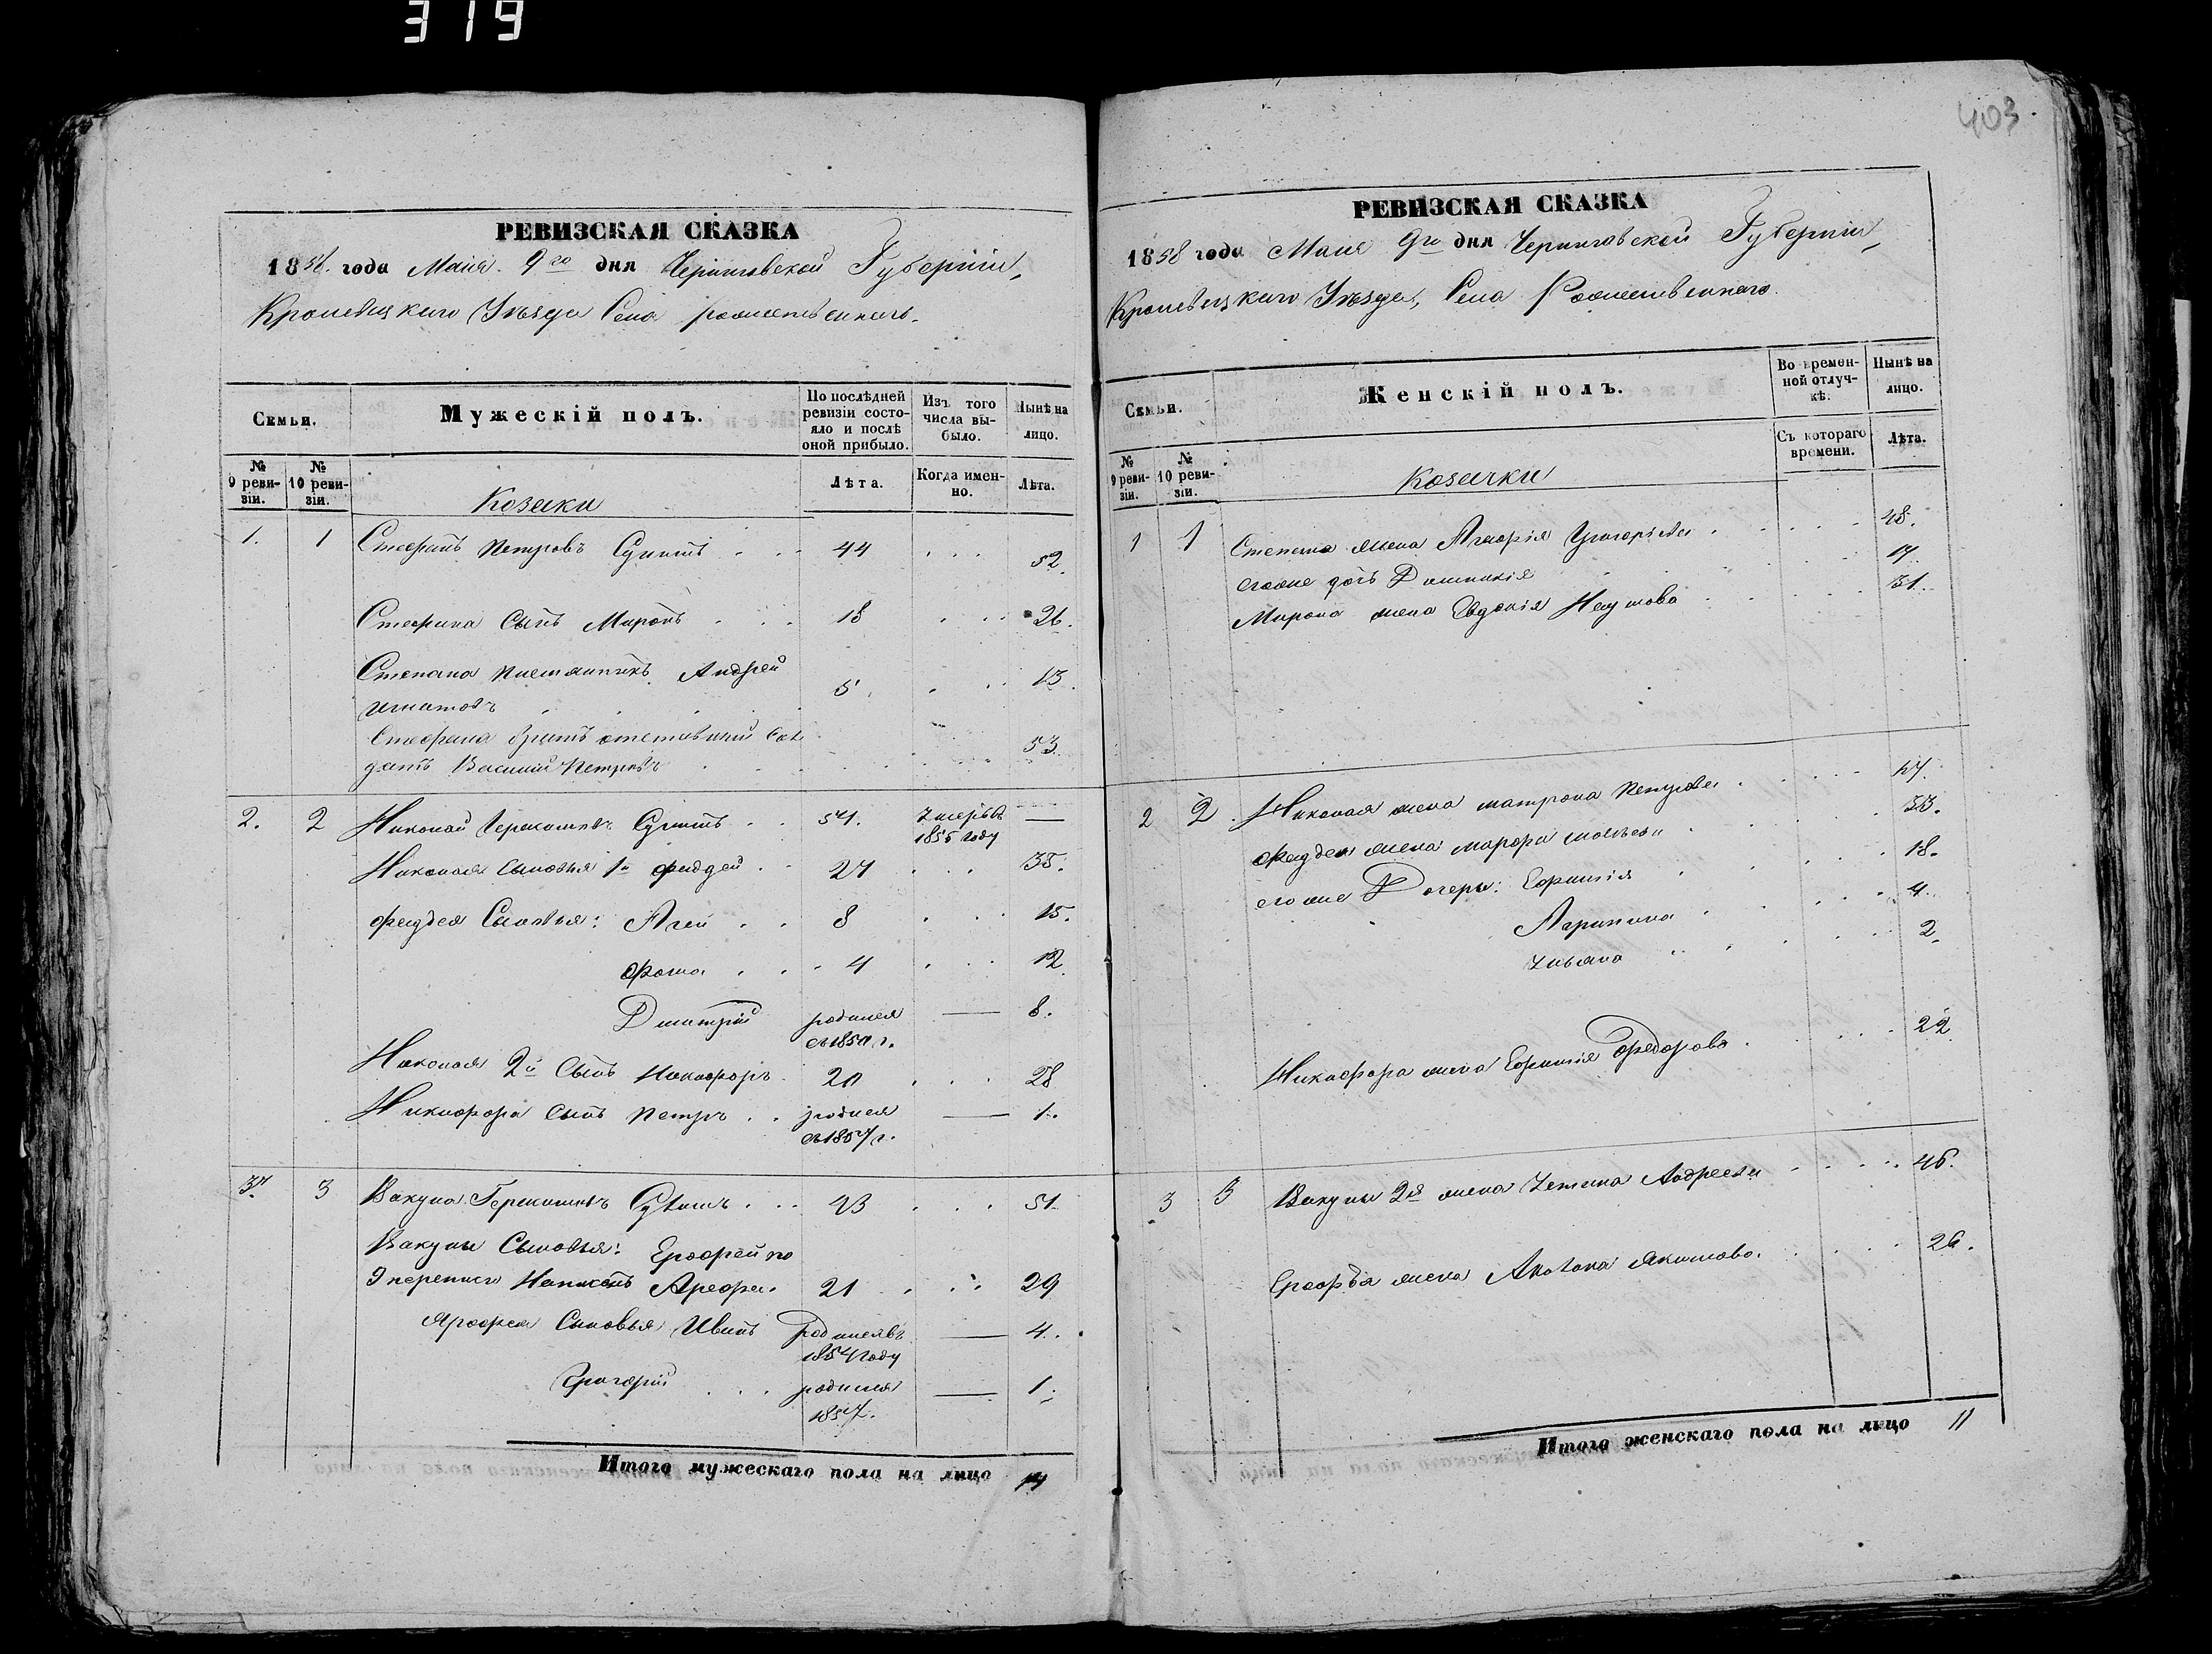 319
403
РЕВИЗСКАЯ СКАЗКА
1858. года Маия 9го дня Черниговской Губерніи,
Кролевецкаго Уезда Села рожественнаго.
Семьи.
Мужескій полъ.
По послѣдней ревизіи состояло и послѣ оной прибыло.
Изъ того числа выбыло.
Нынѣ на лицо.
№ 9 ревизіи.
№ 10 ревизіи.
Козаки
Лѣта.
Когда именно.
Лѣта.
1. 1 Стефанъ Петровъ 44 52.
Стефана Сынъ Миронъ 18 26.
Степана племянникъ Андрей
Игнатовъ 5 13.
Стефана братъ отставной Сол
датъ Василий Петровъ 53
2. 2 Николай 54. умеръ въ
1855 году
Николая Сыновья 1й Фаддей 27 35.
Фаддея Сыновья: Агей 8 15.
Фома 4 12
Дмитрий родился 8.
въ 1850 г.
Николая 2й Сынъ Никифоръ 20 28
Никифора Сынъ Петръ родился 1.
въ 1857 г.
3. 3 Вакула 43 51.
Вакулы Сыновья: Ерофей по
9 переписи Написанъ Арефа 21 29
Ярофея Сыновья Иванъ родился въ 4.
1854 году
Григорий родился 1.
1857.
Итого мужескаго пола на лицо 14
РЕВИЗСКАЯ СКАЗКА
1858 года Маия 9го дня Черниговской Губерніи,
Кролевецкаго Уезда, Села Рожественнаго.
Семьи.
Женскій полъ.
Во временной отлучкѣ.
Нынѣ на лицо.
№ 9 ревизіи.
№ 10 ревизіи.
Козачки
Съ котораго времени.
Лѣта.
1 1 Степана жена Агафія Григоріева 48.
егоже дочь Домникія 17
Мирона жена Евдокія Наумова 31.
2 2. Николая жена матрона Петрова
Фаддея жена марфа 33.
егоже Дочери: Ефимія 18.
Агрипина 4.
Ульяна 2.
Никифора жена Ефимія Федорова 22
3 3 Вакулы 2я жена Андреева 46.
Ерофея жена Якимова. 26.
Итого женскаго пола на лицо 11